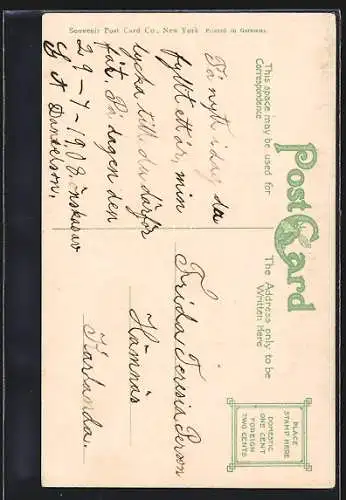 Souvenir Post Card Co., New York Printed in Germany.
Post Card
This space may be used for
Correspondence
The Address only to be
Written Here
PLACE
STAMP HERE
DOMESTIC
ONE CENT
FOREIGN
TWO CENTS
På nytt i dag du
fyllt ett år, min
lycka till du därför
får. På dagen den
29-7-1908. önskas av
G A Danielson.
Frida Teresia Person
Hämnäs
Kärlanda.